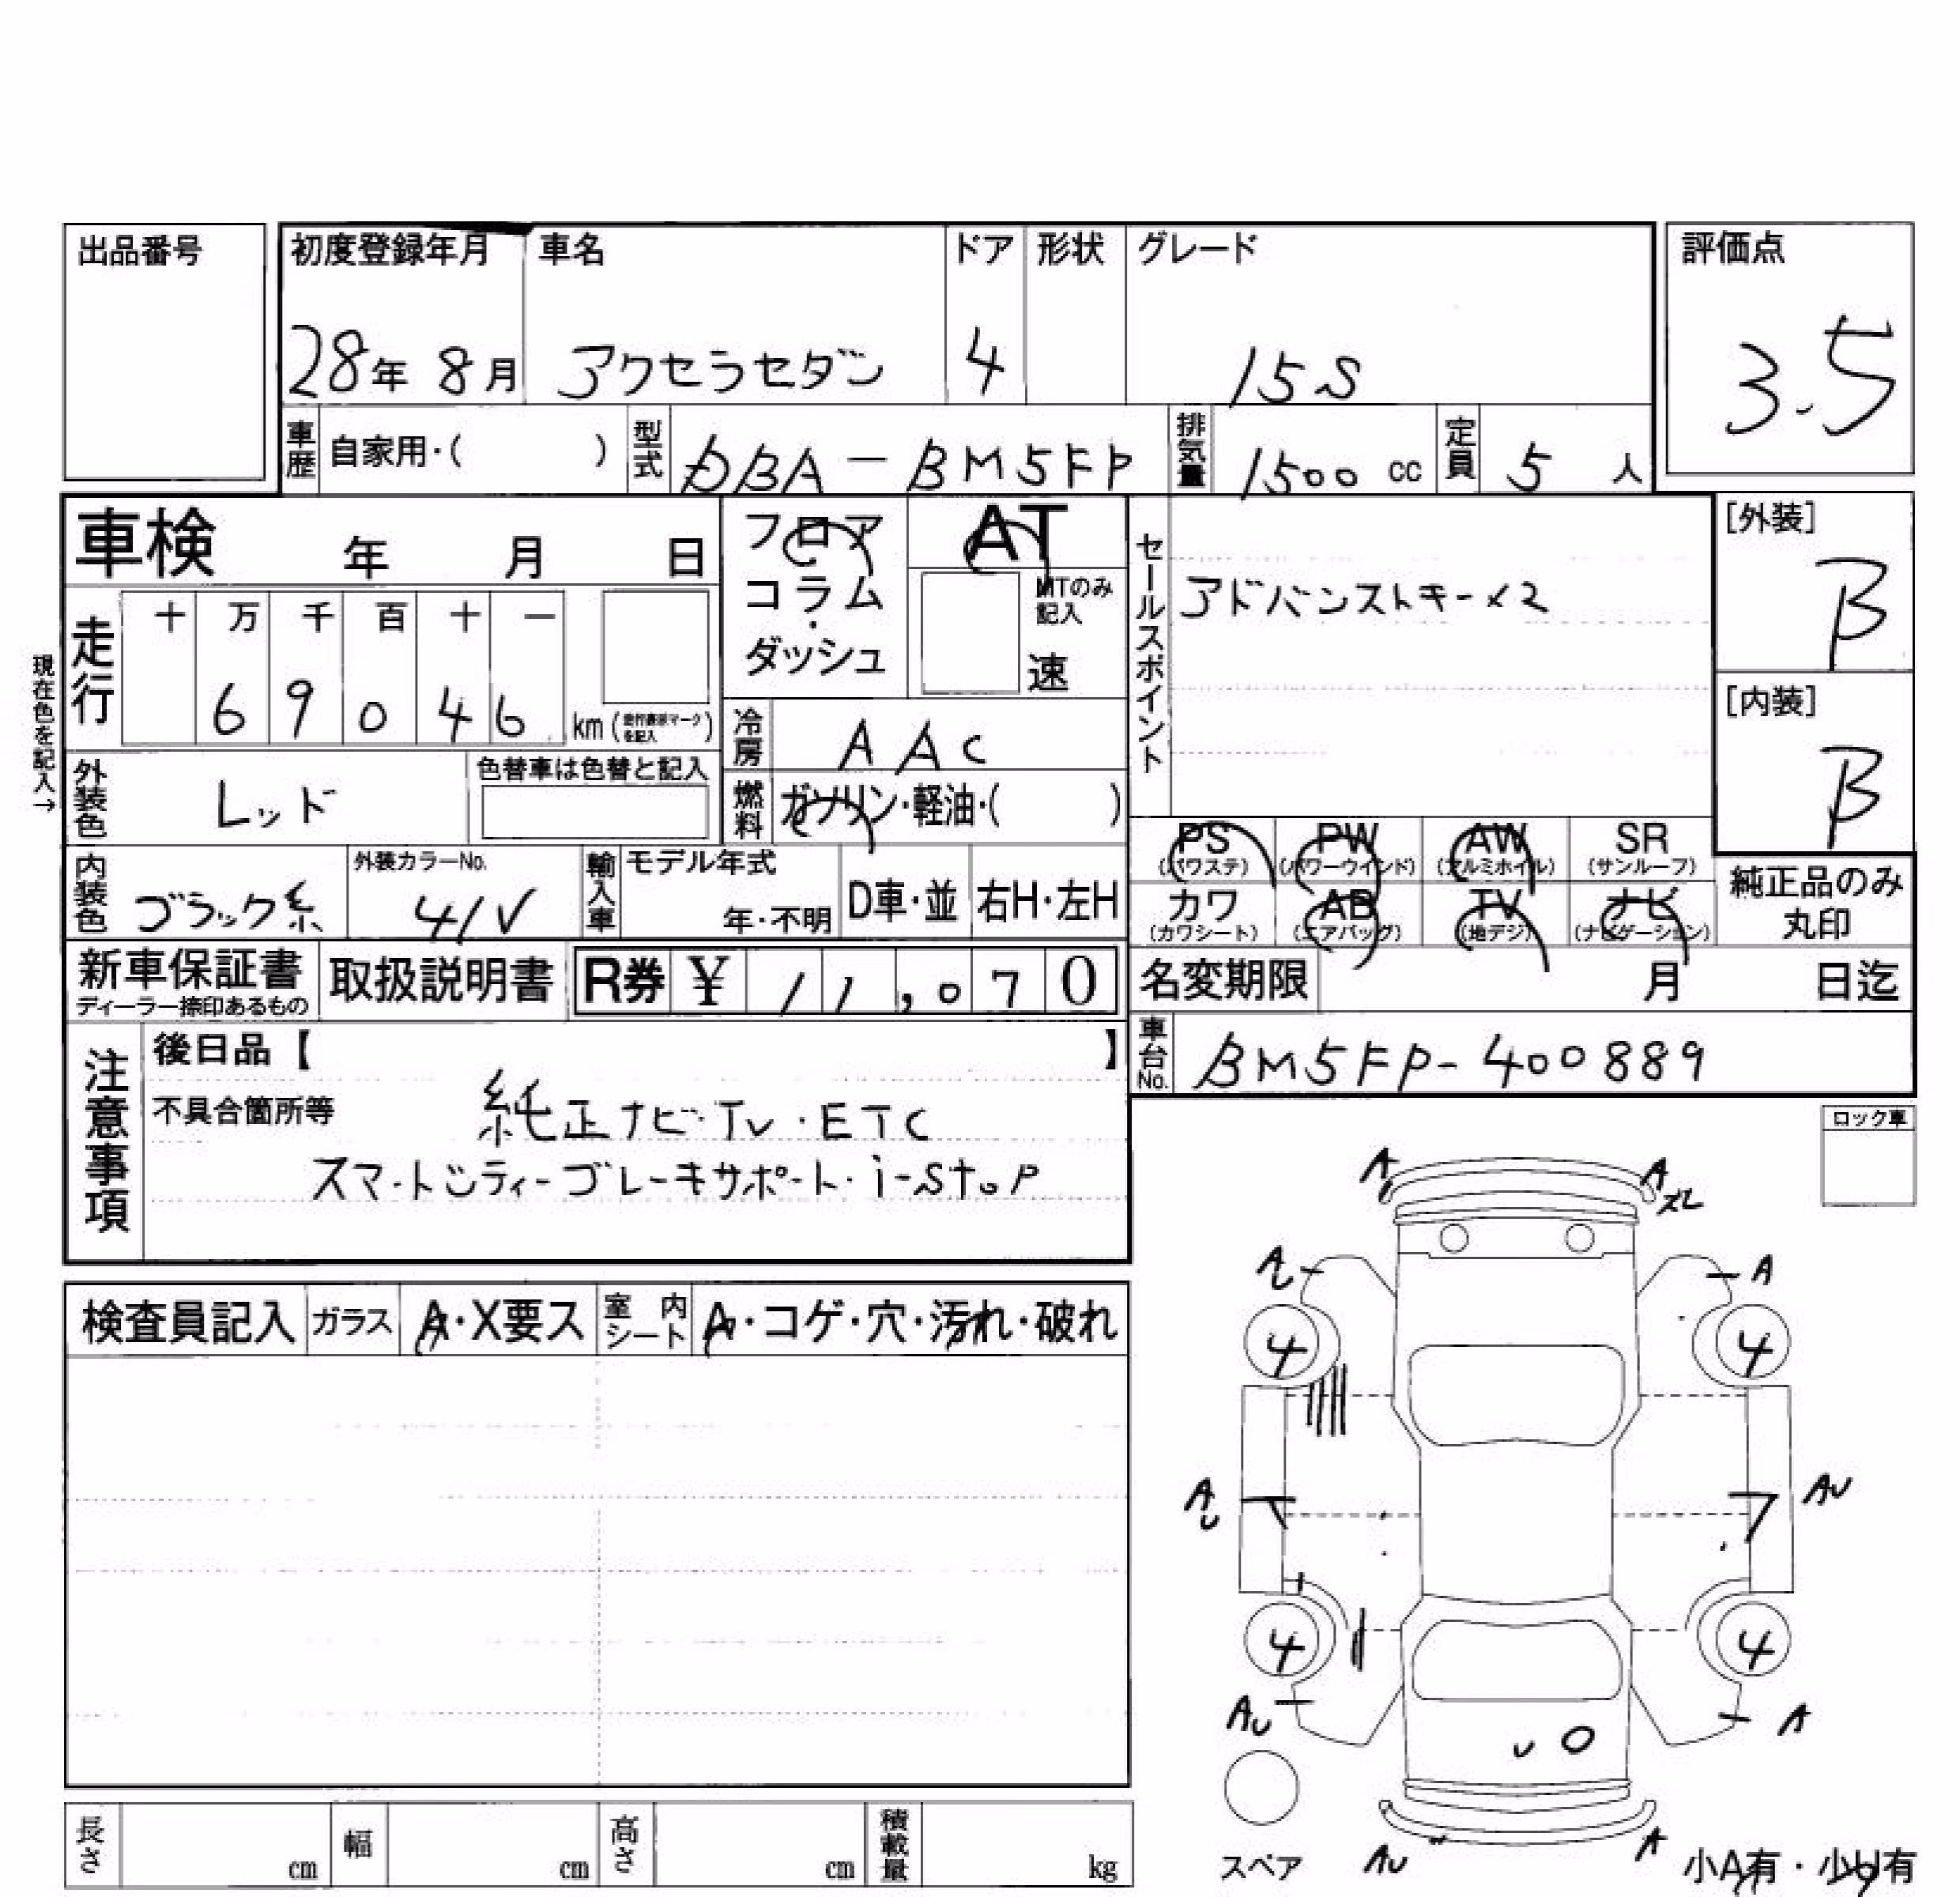 出品番号
初度登録年月 車名 ドア 形状 グレード 評価点
28年 8月 アクセラセダン 4 15S 3.5
車歴 自家用・( ) 型式 DBA-BM5FP 排気量 1500 cc 定員 5 人
車検 年 月 日
フロア・コラム・ダッシュ
AT
MTのみ記入
速
セールスポイント
アドバンストキー×2
[外装]
B
[内装]
B
現在色を記入→
走行 十 万 千 百 十 一
6 9 0 4 6 km
冷房 AAC
外装色 レッド 色替車は色替と記入
燃料 ガソリン・軽油・( )
PS (パワステ) PW (パワーウインド) AW (アルミホイル) SR (サンルーフ)
カワ (カワシート) AB (エアバッグ) TV (地デジ) ナビ (ナビゲーション)
純正品のみ丸印
内装色 ブラック系 外装カラーNo. 41V 輸入車 モデル年式 年・不明 D車・並 右H・左H
新車保証書 ディーラー捺印あるもの 取扱説明書 R券 ¥ 11,070
名変期限 月 日迄
車台No. BM5FP-400889
注意事項
後日品【 】
不具合箇所等
純正ナビ・TV・ETC
スマートシティーブレーキサポート・i-stop
ロック車
A A ズレ
AU A
4 4
AU AU
4 4
AU A
U
AU A
スペア
小A有・少U有
検査員記入 ガラス A・X要ス 室内シート A・コゲ・穴・汚れ・破れ
長さ cm 幅 cm 高さ cm 積載量 kg